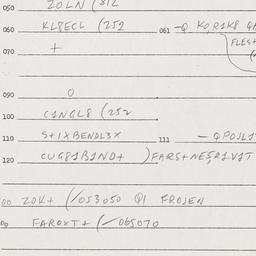 050 ZOLN (812
060 KL8ECL (252 061 -Q KORIK8
FLES+
070 +
090 O
100 C1NGL8 (252
110 S+1XBENDL3X 111 - QPOJL1
120 CUG81B1ND+ )FARS+NESR1V1T
ZOK+ (/053050 QI FROJEN
FAROXT+ (/065070